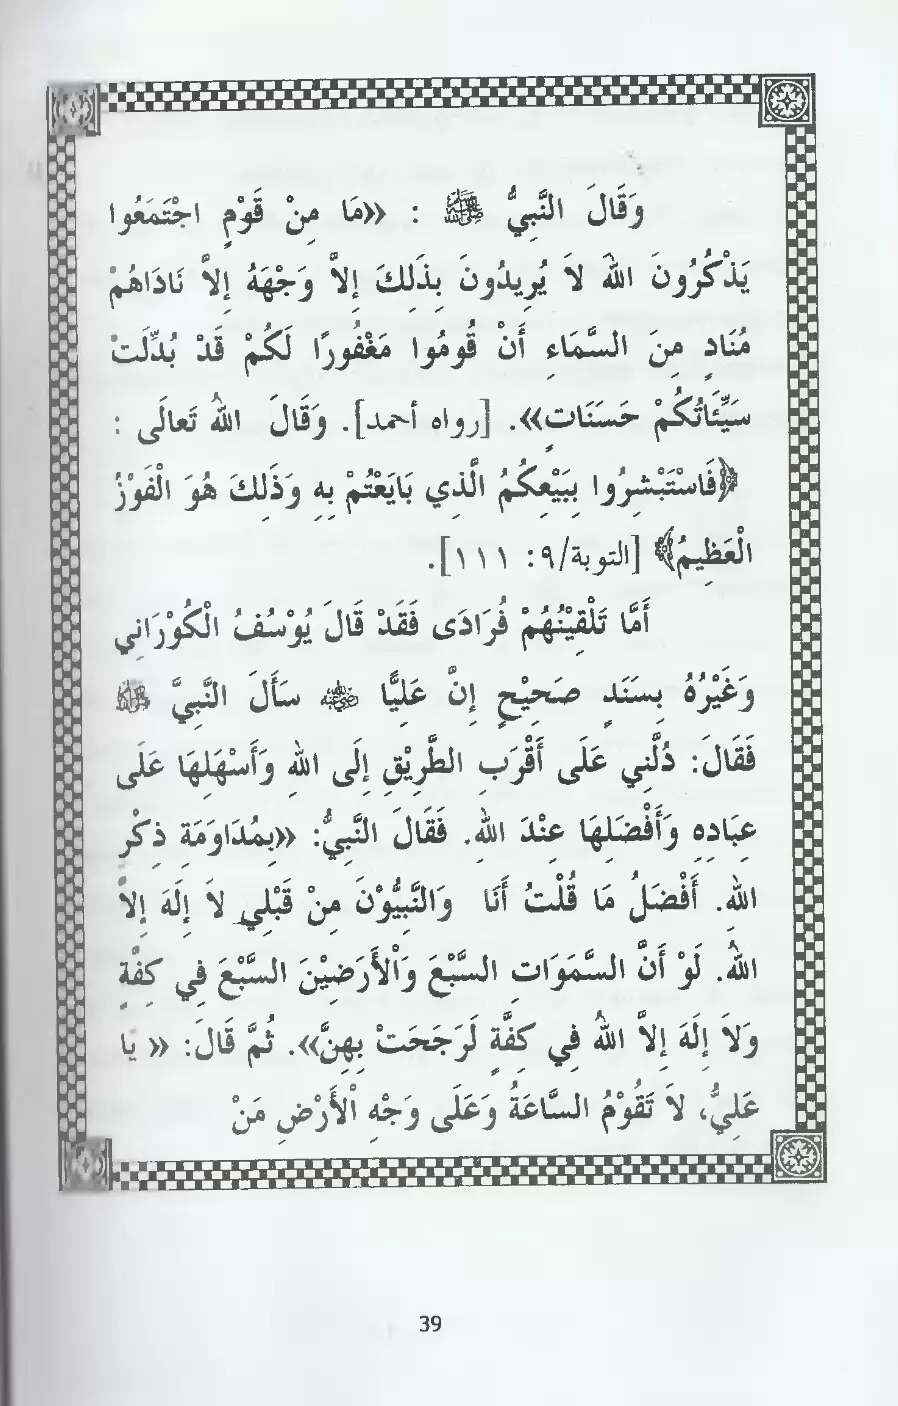 وَقَالَ النَّبِيُّ ﷺ : «مَا مِنْ قَوْمٍ اجْتَمَعُوا
يَذْكُرُونَ اللهَ لاَ يُرِيدُونَ بِذَلِكَ إِلاَّ وَجْهَهُ إِلاَّ نَادَاهُمْ
مُنَادٍ مِنَ السَّمَاءِ أَنْ قُومُوا مَغْفُورًا لَكُمْ قَدْ بُدِّلَتْ
سَيِّئَاتُكُمْ حَسَنَاتٍ». [رواه أحمد]. وَقَالَ اللهُ تَعَالَى :
﴿فَاسْتَبْشِرُوا بِبَيْعِكُمُ الَّذِي بَايَعْتُمْ بِهِ وَذَلِكَ هُوَ الْفَوْزُ
الْعَظِيمُ﴾ [التوبة/٩: ١١١].
أَمَّا تَلْقِيْنُهُمْ فُرَادَى فَقَدْ قَالَ يُوْسُفُ الْكُوْرَانِي
وَغَيْرُهُ بِسَنَدٍ صَحِيْحٍ إِنَّ عَلِيًّا ﷺ سَأَلَ النَّبِيَّ ﷺ
فَقَالَ: دُلَّنِي عَلَى أَقْرَبِ الطَّرِيْقِ إِلَى اللهِ وَأَسْهَلِهَا عَلَى
عِبَادِهِ وَأَفْضَلِهَا عِنْدَ اللهِ. فَقَالَ النَّبِيُّ: «بِمُدَاوَمَةِ ذِكْرِ
اللهِ. أَفْضَلُ مَا قُلْتُ أَنَا وَالنَّبِيُّوْنَ مِنْ قَبْلِي لاَ إِلَهَ إِلاَّ
اللهُ. لَوْ أَنَّ السَّمَوَاتِ السَّبْعَ وَاْلأَرَضِيْنَ السَّبْعَ فِي كِفَّةٍ
وَلاَ إِلَهَ إِلاَّ اللهُ فِي كِفَّةٍ لَرَجَحَتْ بِهِنَّ». ثُمَّ قَالَ: « يَا
عَلِيُّ، لاَ تَقُوْمُ السَّاعَةُ وَعَلَى وَجْهِ اْلأَرْضِ مَنْ
39